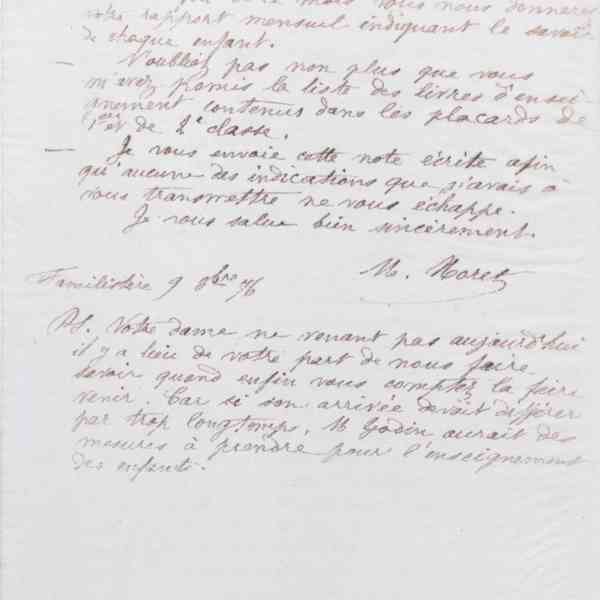 mois vous nous donneres
votre rapport mensuel indiquant le savoir
de chaque enfant.
— N'oubliez pas non plus que vous
m'avez promis la liste des livres d'ensei-
gnement contenus dans les placards de
1ere et de 2e classe.
— Je vous envoie cette note écrite afin
qu'aucune des indications que j'avais à
vous transmettre ne vous échappe.
Je vous salue bien sincèrement.
M. Moret
Familistère 9 8bre 76
PS. Votre dame ne venant pas aujourd'hui
il y a lieu de votre part de nous faire
savoir quand enfin vous comptez la faire
venir. Car si son arrivée devait différer
par trop longtemps, M Godin aurait des
mesures à prendre pour l'enseignement
des enfants.